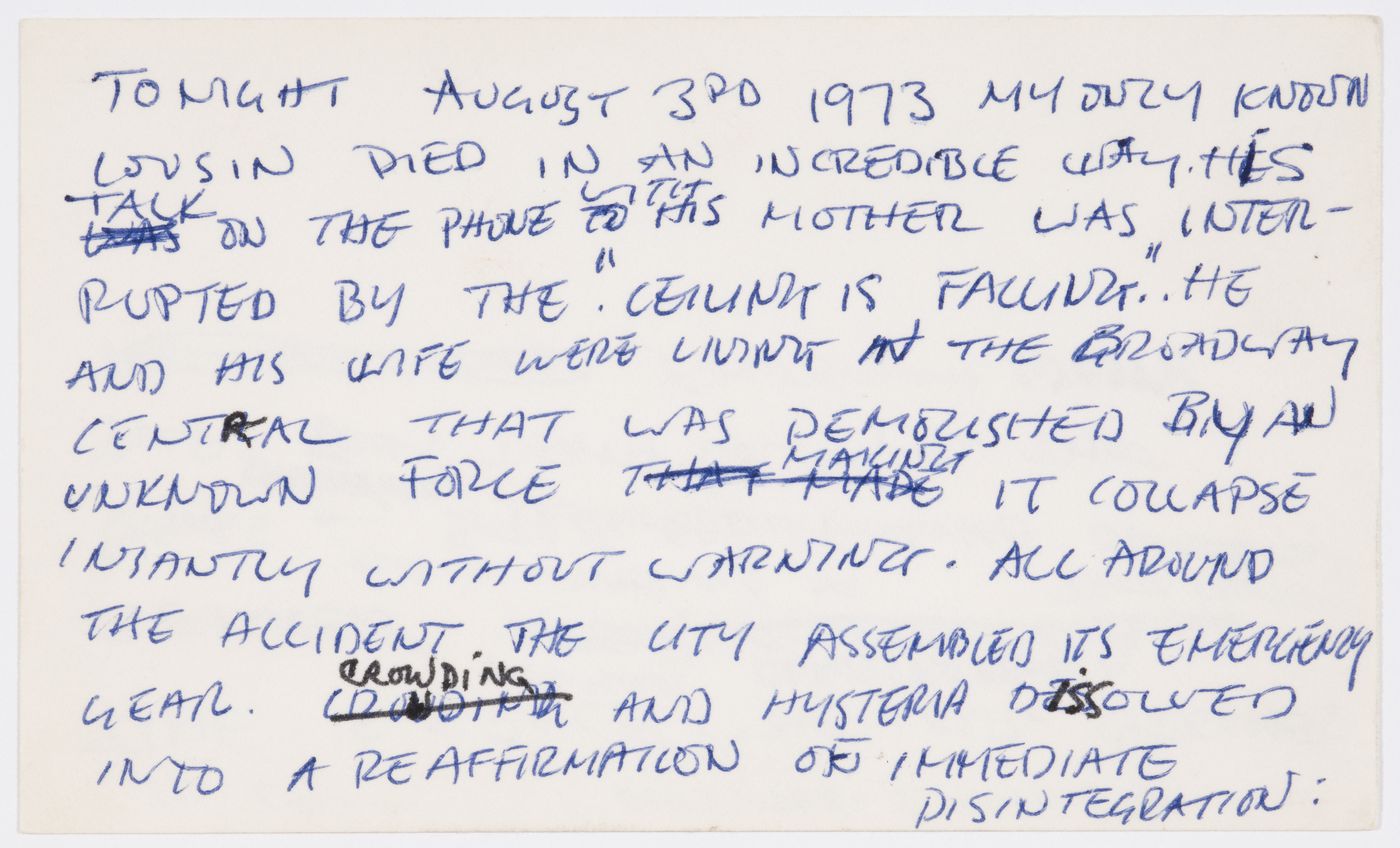 TONIGHT AUGUST 3RD 1973 MY ONLY KNOWN
COUSIN DIED IN AN INCREDIBLE WAY. HIS
TALK ON THE PHONE WITH HIS MOTHER WAS INTER-
RUPTED BY THE "CEILING IS FALLING".. HE
AND HIS WIFE WERE LIVING IN THE BROADWAY
CENTRAL THAT WAS DEMOLISHED BY AN
UNKNOWN FORCE MAKING IT COLLAPSE
INSANTLY WITHOUT WARNING. ALL AROUND
THE ACCIDENT THE CITY ASSEMBLED ITS EMERGENCY
GEAR. CROWDING AND HYSTERIA DISSOLVED
INTO A REAFFIRMATION OF IMMEDIATE
DISINTEGRATION: